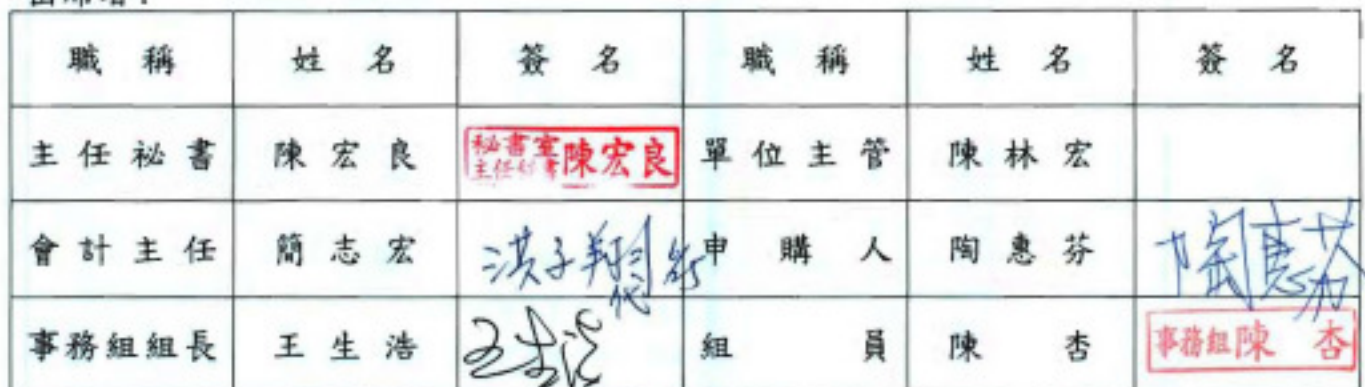 職稱 姓名 簽名 職稱 姓名 簽名
主任祕書 陳宏良 秘書室主任秘書陳宏良 單位主管 陳林宏
會計主任 簡志宏 洪子翔 代 申購人 陶惠芬 陶惠芬
事務組組長 王生浩 王生浩 組員 陳杏 事務組陳杏